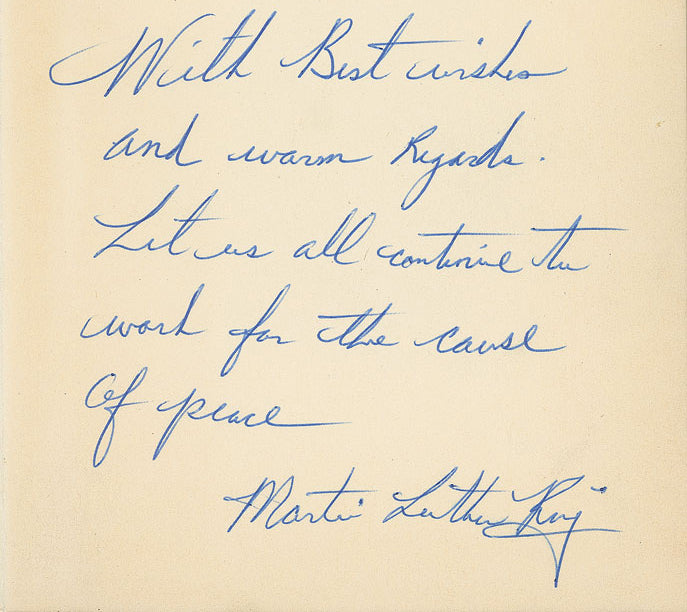 With Best wishes
and warm Regards.
Let us all continue to
work for the cause
of peace
Martin Luther King